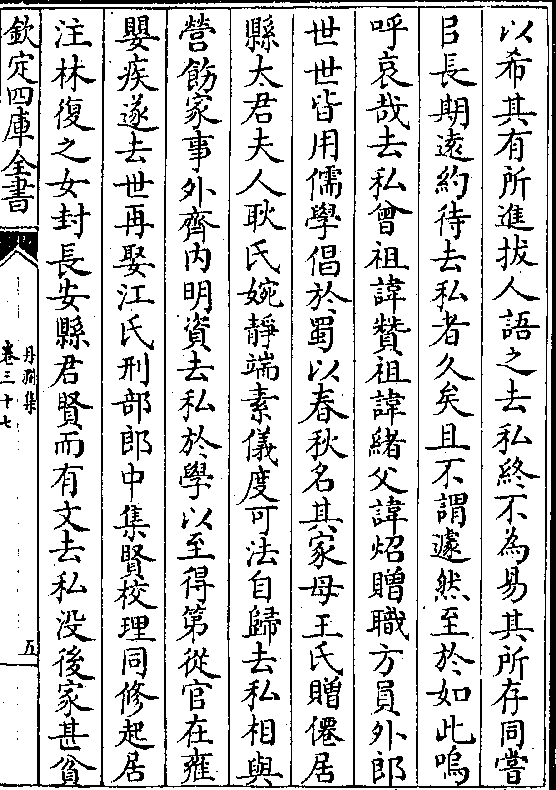 以希其有所進拔人語之去私終不為易其所存同嘗
㠯長期遠約待去私者久矣且不謂遽然至於如此嗚
呼哀哉去私曾祖諱贊祖諱緒父諱炤贈職方員外郎
世世皆用儒學倡於蜀以春秋名其家母王氏贈僊居
縣太君夫人耿氏婉靜端素儀度可法自歸去私相與
營飭家事外齊内明資去私於學以至得第從官在雍
嬰疾遂去世再娶江氏刑部郎中集賢校理同修起居
注林復之女封長安縣君賢而有文去私没後家甚貧
欽定四庫全書
丹淵集
卷三十七
五